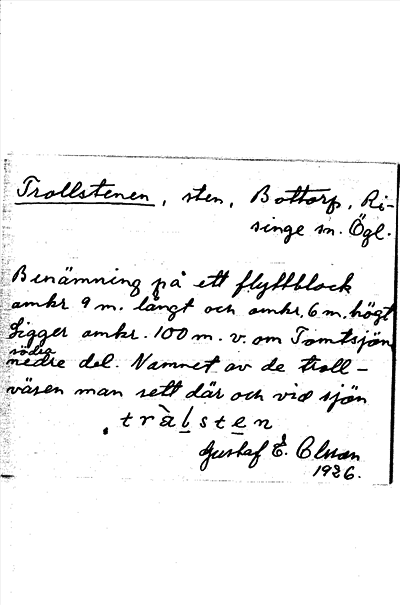 Trollstenen, sten, Bottorp, Ri-
singe sn. Ögl.
Benämning på ett flyttblock
omkr 9 m. långt och omkr. 6 m. högt
Ligger omkr. 100 m. v. om Tomtsjön
södra
nedre del. Namnet av de troll-
väsen man sett där och vid sjön
Gustaf E. Olsson
1926.